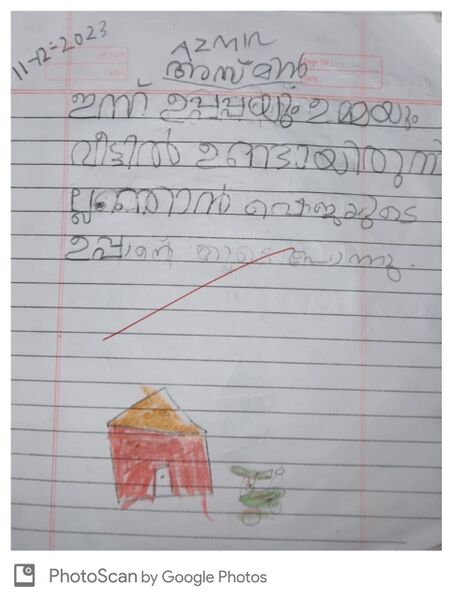 11-12-2023
AZMIL
അസ്മിൽ
ഇന്ന് ഉപ്പയും ഉമ്മയും
വീട്ടിൽ ഉണ്ടായിരുന്നി
ല്ല ഞാൻ
ഉപ്പാന്റെ കൂടെ പോന്നു.
PhotoScan by Google Photos